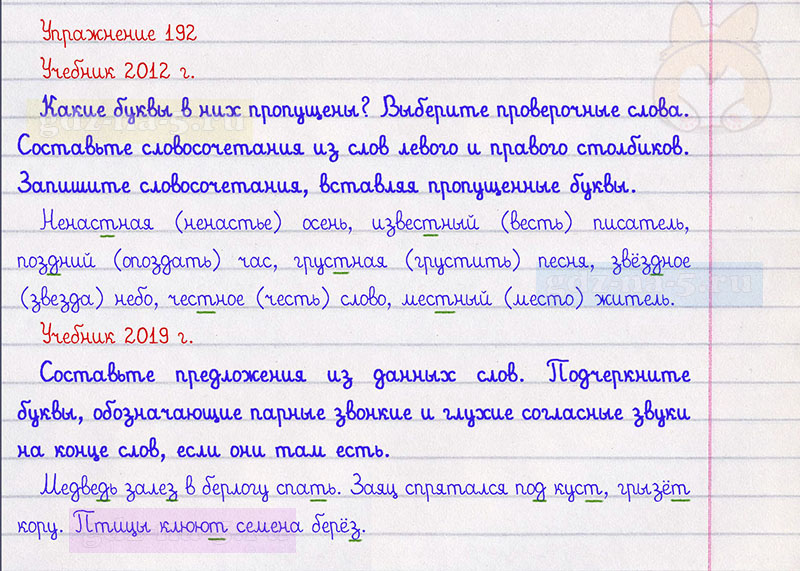 Упражнение 192
Учебник 2012 г.
Какие буквы в них пропущены? Выберите проверочные слова.
Составьте словосочетания из слов левого и правого столбиков.
Запишите словосочетания, вставляя пропущенные буквы.
Ненастная (ненастье) осень, известный (весть) писатель,
поздний (опоздать) час, грустная (грустить) песня, звёздное
(звезда) небо, честное (честь) слово, местный (место) житель.
Учебник 2019 г.
Составьте предложения из данных слов. Подчеркните
буквы, обозначающие парные звонкие и глухие согласные звуки
на конце слов, если они там есть.
Медведь залез в берлогу спать. Заяц спрятался под куст, грызёт
кору. Птицы клюют семена берёз.